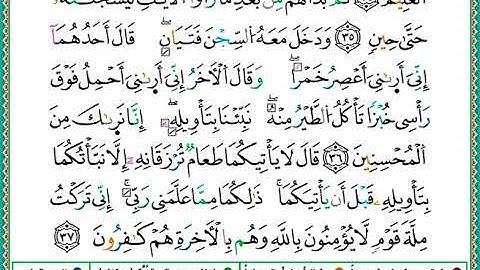 ثُمَّ بَدَا لَهُم مِّنۢ بَعْدِ مَا رَأَوُا۟ ٱلْـَٔايَـٰتِ لَيَسْجُنُنَّهُۥ
حَتَّىٰ حِينٍ ۝٣٥ وَدَخَلَ مَعَهُ ٱلسِّجْنَ فَتَيَانِ ۖ قَالَ أَحَدُهُمَآ
إِنِّىٓ أَرَىٰنِىٓ أَعْصِرُ خَمْرًا ۖ وَقَالَ ٱلْـَٔاخَرُ إِنِّىٓ أَرَىٰنِىٓ أَحْمِلُ فَوْقَ
رَأْسِى خُبْزًا تَأْكُلُ ٱلطَّيْرُ مِنْهُ ۖ نَبِّئْنَا بِتَأْوِيلِهِۦٓ ۖ إِنَّا نَرَىٰكَ مِنَ
ٱلْمُحْسِنِينَ ۝٣٦ قَالَ لَا يَأْتِيكُمَا طَعَامٌ تُرْزَقَانِهِۦٓ إِلَّا نَبَّأْتُكُمَا
بِتَأْوِيلِهِۦ قَبْلَ أَن يَأْتِيَكُمَا ۚ ذَٰلِكُمَا مِمَّا عَلَّمَنِى رَبِّىٓ ۚ إِنِّى تَرَكْتُ
مِلَّةَ قَوْمٍ لَّا يُؤْمِنُونَ بِٱللَّهِ وَهُم بِٱلْـَٔاخِرَةِ هُمْ كَـٰفِرُونَ ۝٣٧